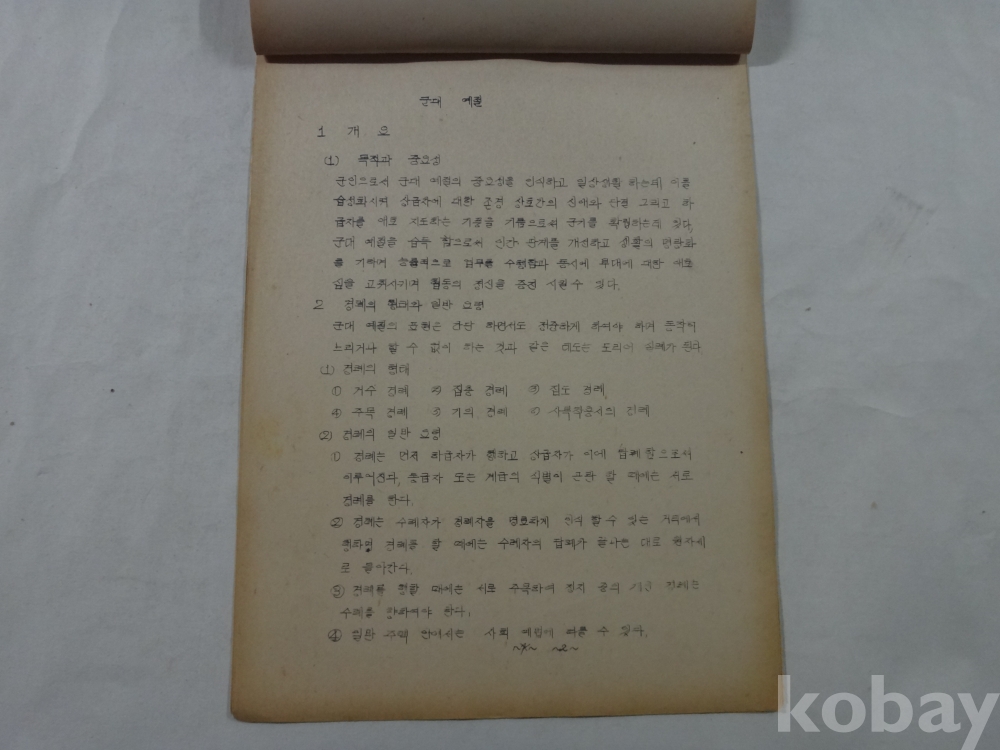 군대 예절
1 개 요
(1) 목적과 중요성
군인으로서 군대 예절의 중요성을 인식하고 일상생활 하는데 이를
습성화시켜 상급자에 대한 존경 상호간의 신애와 단결 그리고 하
급자를 애호 지도하는 기풍을 기름으로써 군기를 확립하는데 있다.
군대 예절을 습득 함으로써 인간 관계를 개선하고 생활의 명랑화
를 기하여 능률적으로 업무를 수행함과 동시에 부대에 대한 애호
심을 고취시키며 협동의 정신을 증진 시킬 수 있다.
2 경례의 형태와 일반 요령
군대 예절의 표현은 간단 하면서도 정중하게 하여야 하며 동작이
느리거나 할 수 없이 하는 것과 같은 태도는 도리어 실례가 된다
(1) 경례의 형태
① 거수 경례 ② 집총 경례 ③ 집도 경례
④ 주목 경례 ⑤ 기의 경례 ⑥ 경례
② 경례의 일반 요령
① 경례는 먼저 하급자가 행하고 상급자가 이에 답례함으로써
이루어진다, 동급자 또는 계급의 식별이 곤란 할 때에는 서로
경례를 한다.
② 경례는 수례자가 경례자를 명료하게 인식 할 수 있는 거리에서
행하며 경례를 할 때에는 수례자의 답례가 끝나는 대로 원자세
로 돌아간다.
③ 경례를 행할 때에는 서로 주목하며 경례는
수례를 하여야 한다.
④ 일반 안에서는 사회 예절에 따를 수 있다.
~2~
kobay